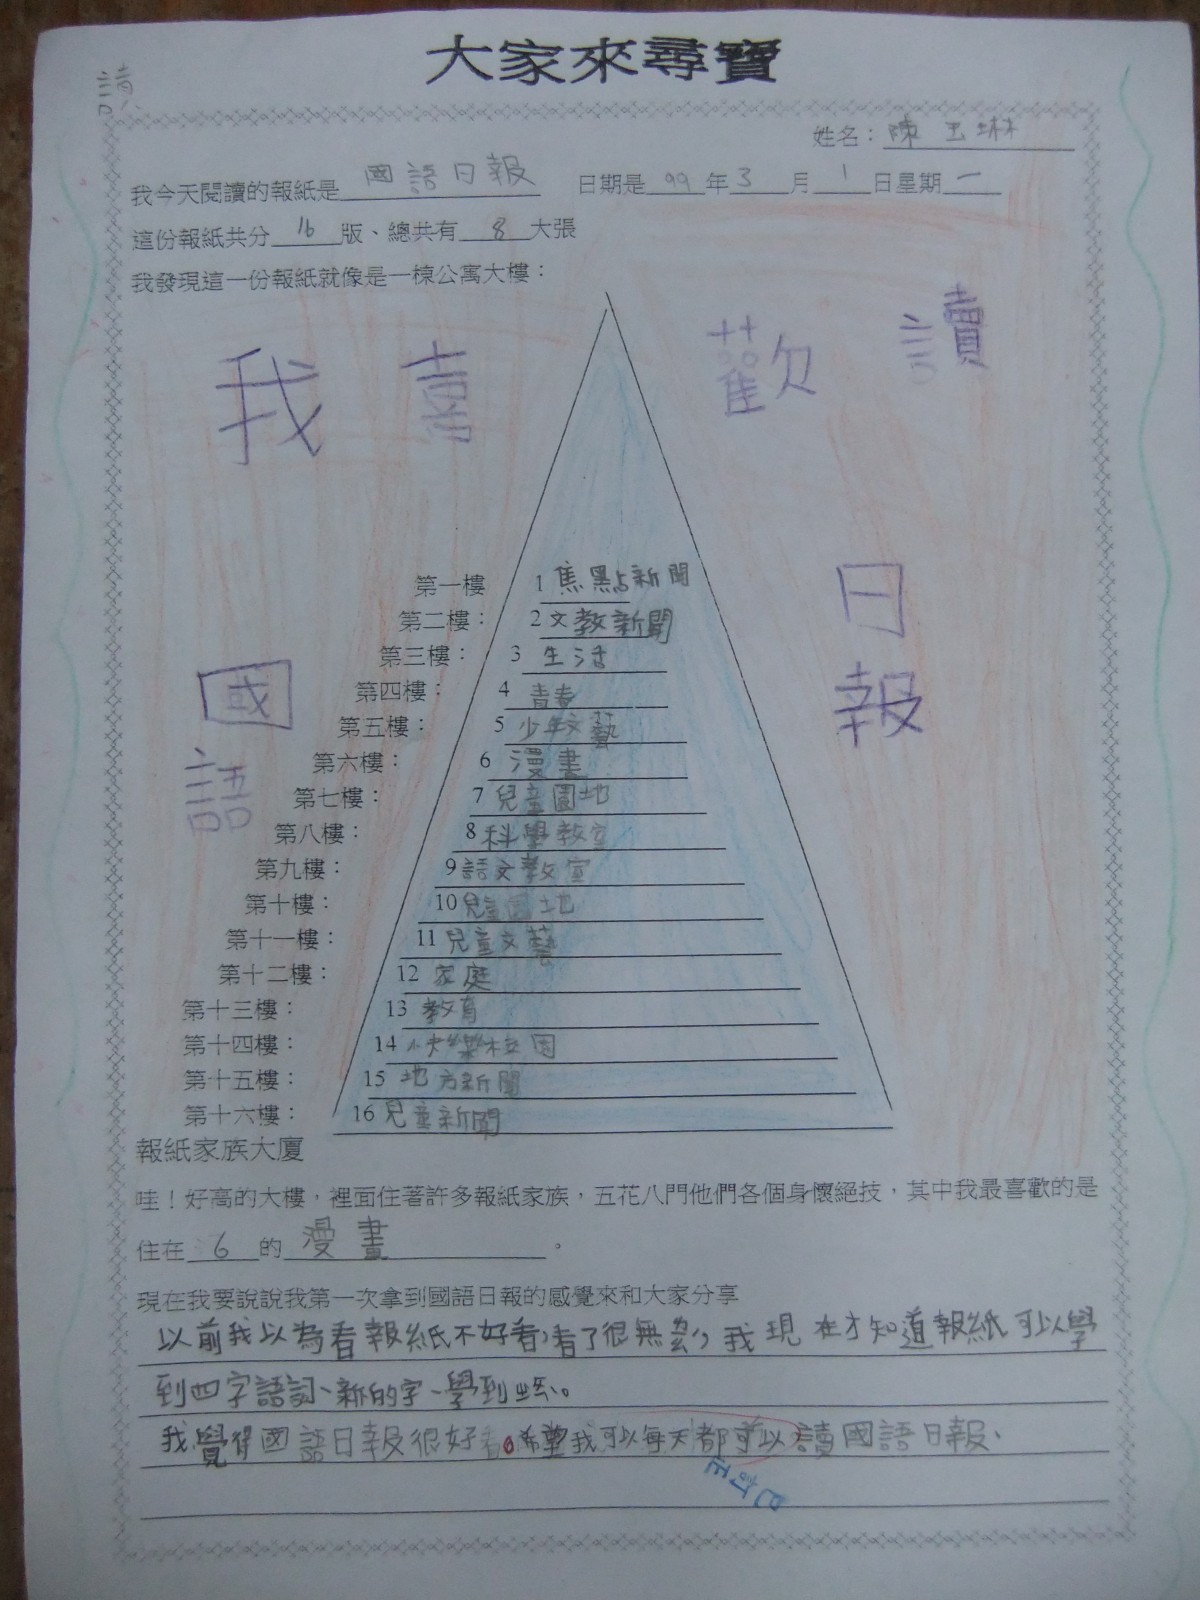 大家來尋寶
讀
姓名：陳玉琳
我今天閱讀的報紙是國語日報 日期是99年3月1日星期一
這份報紙共分16版、總共有8大張
我發現這一份報紙就像是一棟公寓大樓：
我喜歡讀
國語日報
第一樓 1 焦點新聞
第二樓： 2 文教新聞
第三樓： 3 生活
第四樓： 4 青春
第五樓： 5 少年文藝
第六樓： 6 漫畫
第七樓： 7 兒童園地
第八樓： 8 科學教室
第九樓： 9 語文教室
第十樓： 10 兒童園地
第十一樓： 11 兒童文藝
第十二樓： 12 家庭
第十三樓： 13 教育
第十四樓： 14 快樂校園
第十五樓： 15 地方新聞
第十六樓： 16 兒童新聞
報紙家族大廈
哇！好高的大樓，裡面住著許多報紙家族，五花八門他們各個身懷絕技，其中我最喜歡的是
住在6的漫畫。
現在我要說說我第一次拿到國語日報的感覺來和大家分享
以前我以為看報紙不好看，看了很無，我現在才知道報紙可以學
到四字語詞、新的字、學到。
我覺得國語日報很好看。希望我可以每天都可以讀國語日報、
已訂正